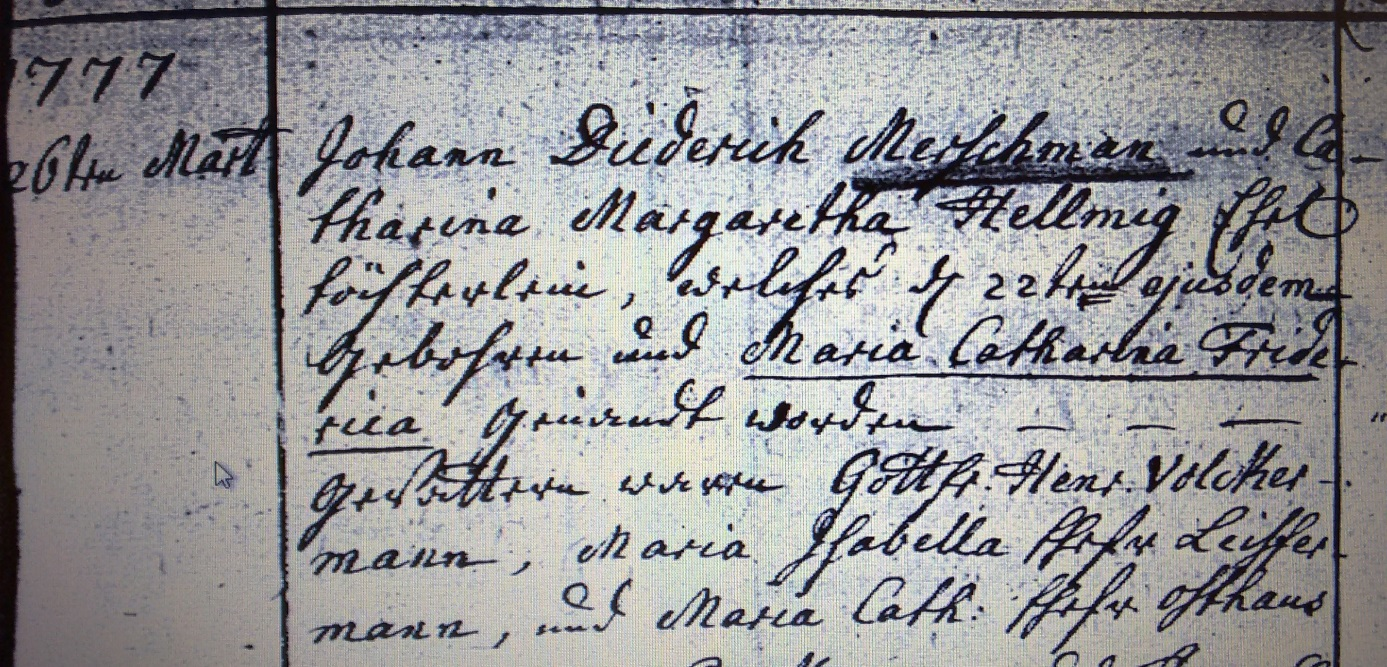 1777
26ten Mart
Johann Diederich Merschman und Ca-
tharina Margaretha Hellmig Ehel
töchterlein, welches d 22ten ejusdem
gebohren und Maria Catharina Fride-
rica genandt worden — — —
Gevattern waren Gottfr: Henr. Volcker-
mann, Maria Isabella Ehefr Leiffer-
mann, und Maria Cath: Ehefr Osthaus